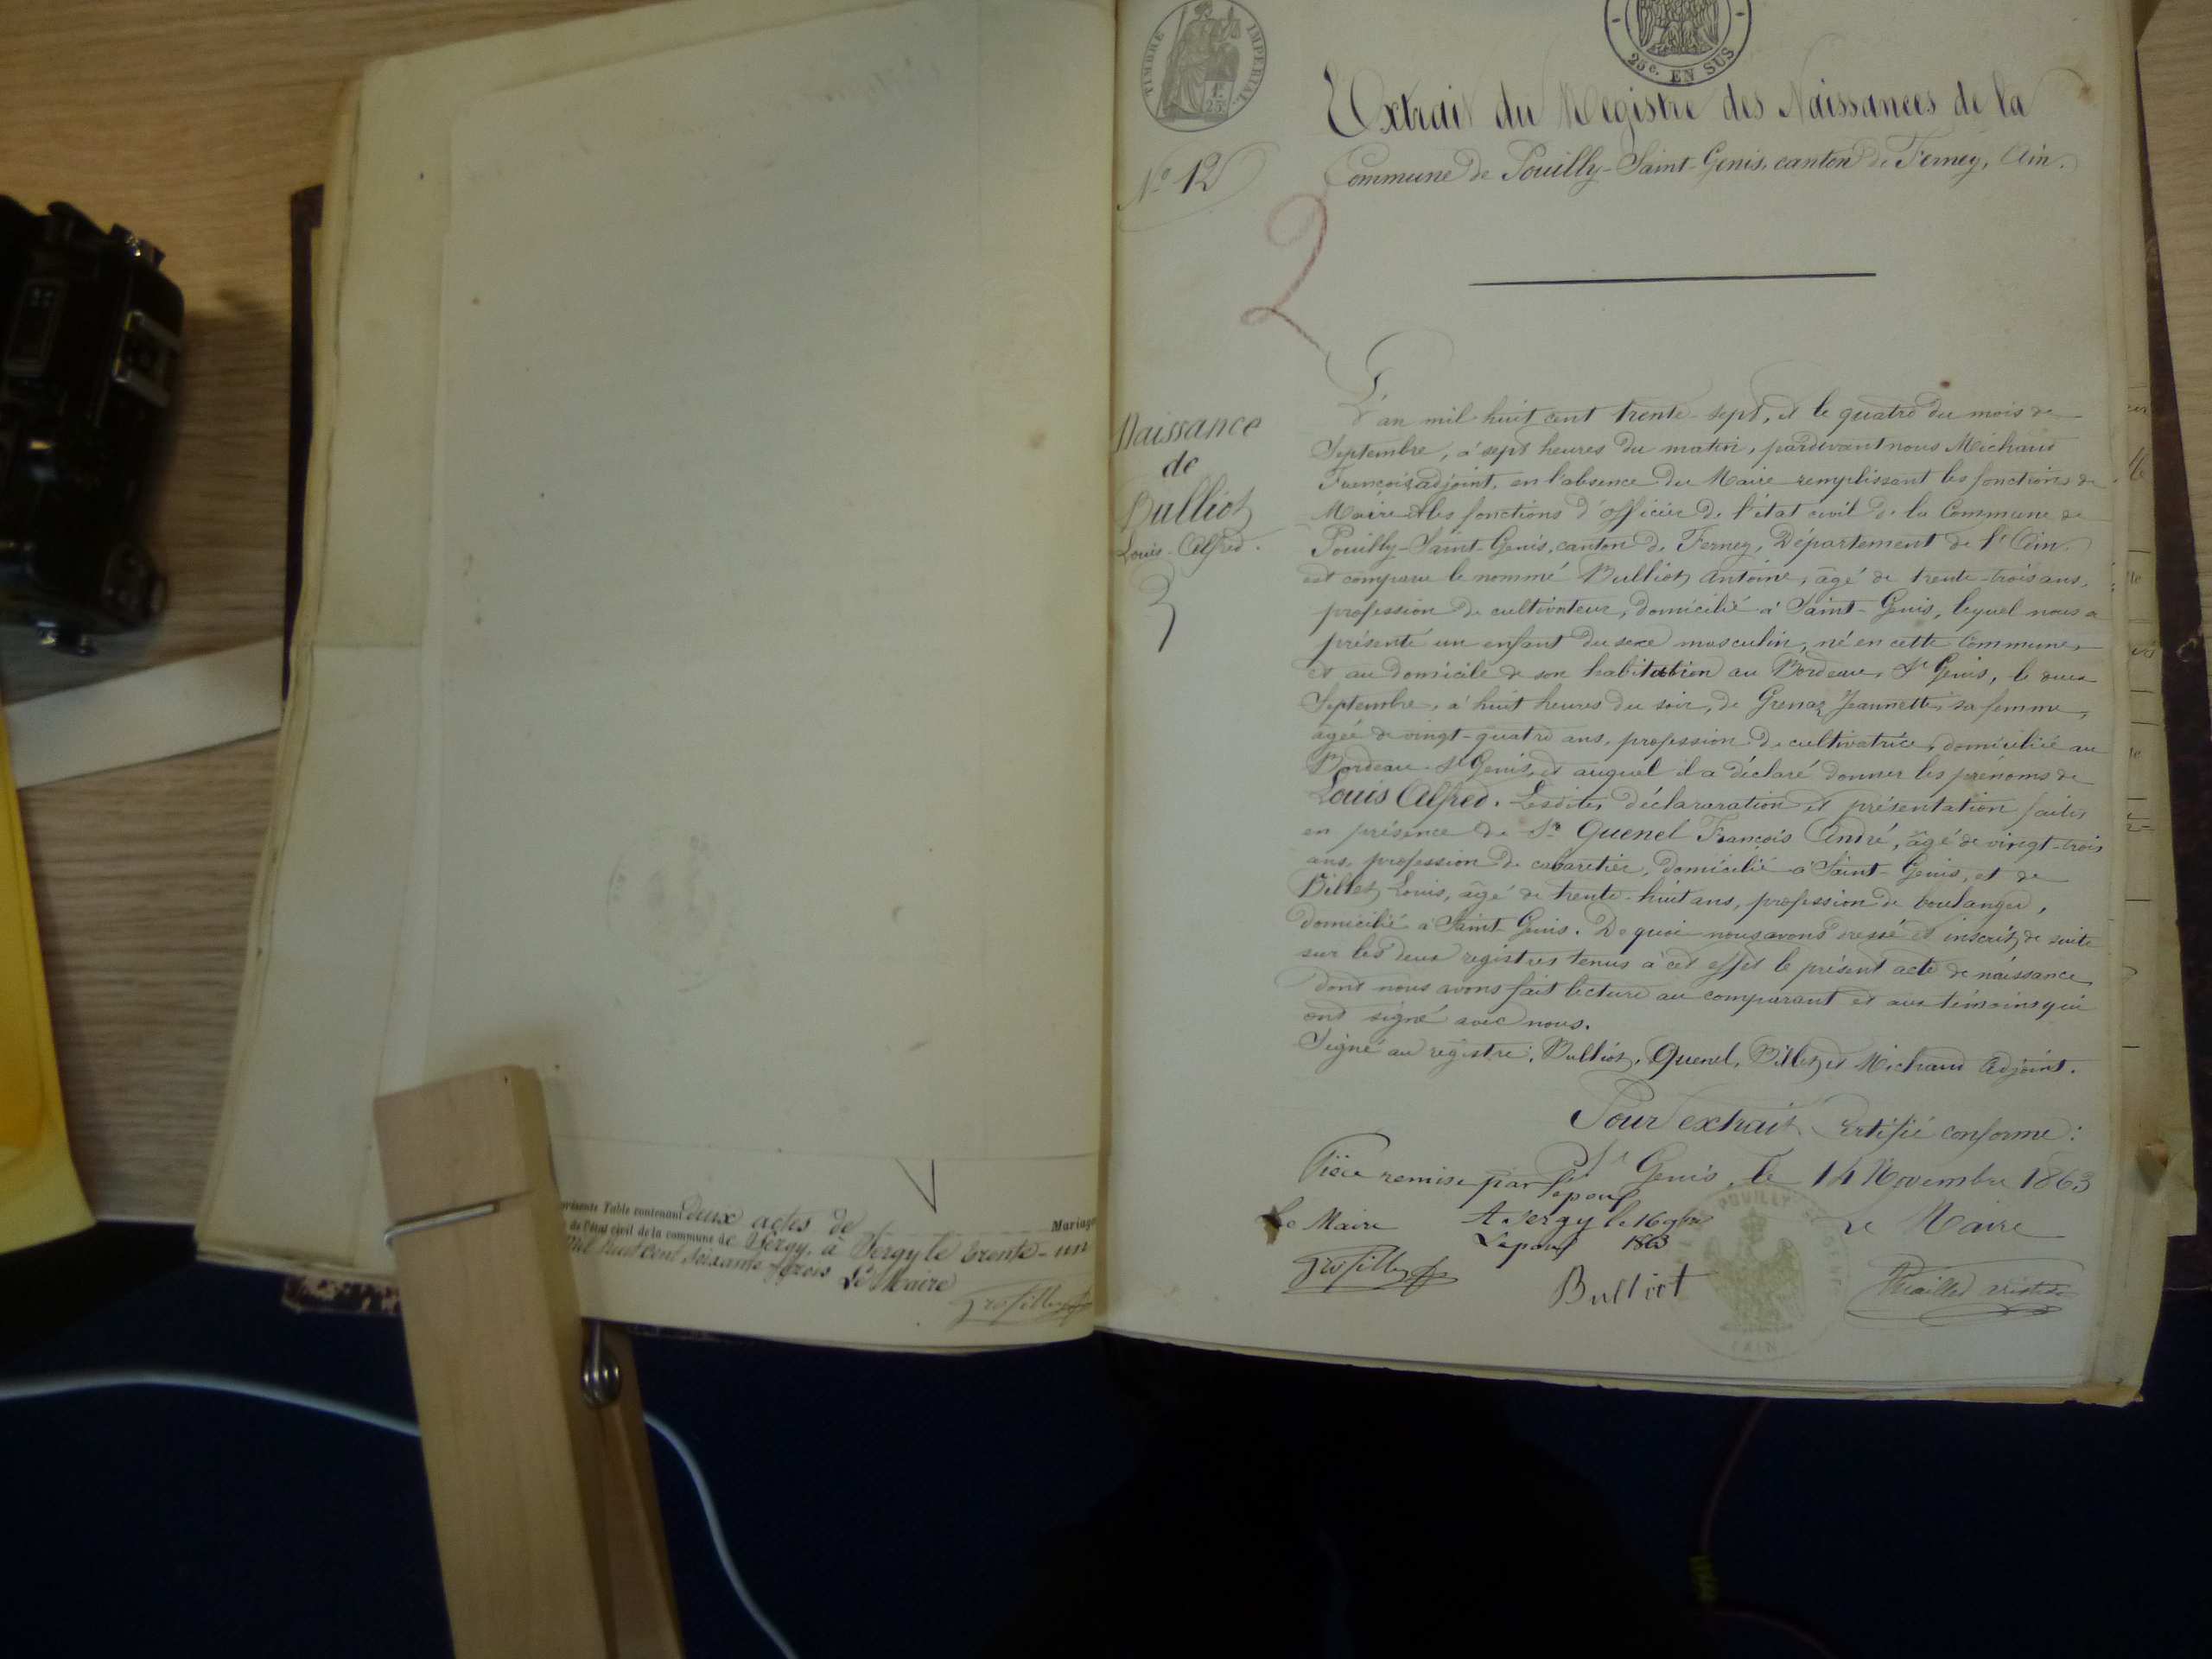 présente Table contenant deux actes de Mariage
de l'état civil de la commune de Sergy, à Sergy le trente-un
mil huit cent soixante trois Le Maire
TIMBRE IMPERIAL
1f.
25c.
25c. EN SUS
Extrait du Registre des Naissances de la
Commune de Pouilly-Saint-Genis, canton de Ferney, Ain.
No 12
2
Naissance
de
Bulliot
Louis-Alfred.
3
L'an mil huit cent trente-sept, et le quatre du mois de
Septembre, à sept heures du matin, pardevant nous Michaud
François adjoint, en l'absence du Maire remplissant les fonctions de
Maire et les fonctions d'officier de l'état civil de la Commune de
Pouilly-Saint-Genis, canton de Ferney, Département de l'Ain.
est comparu le nommé Bulliot Antoine, âgé de trente-trois ans,
profession de cultivateur, domicilié à Saint-Genis, lequel nous a
présenté un enfant du sexe masculin, né en cette Commune,
et au domicile de son habitation au Bordeau, St Genis, le deux
Septembre, à huit heures du soir, de Grenaz Jeannette, sa femme,
âgée de vingt-quatre ans, profession de cultivatrice, domiciliée au
Bordeau-St Genis, et auquel il a déclaré donner les prénoms de
Louis Alfred. Lesdites déclararation et présentation faites
en présence de Sr Quenel François André, âgé de vingt-trois
ans, profession de cabaretier, domicilié à Saint-Genis, et de
Billet Louis, âgé de trente-huit ans, profession de boulanger,
domicilié à Saint-Genis. De quoi nous avons dressé et inscrit de suite
sur les deux registres tenus à cet effet le présent acte de naissance
dont nous avons fait lecture au comparant et aux témoins qui
ont signé avec nous.
Signé au registre: Bulliot, Quenel, Billet et Michaud Adjoint.
Pour extrait Certifié conforme:
St Genis, le 14 Novembre 1863
Pièce remise par l'époux
Le Maire A Sergy le 16 9bre Le Maire
L'époux 1863
Bulliot
POUILLY ST GENIS
(AIN)